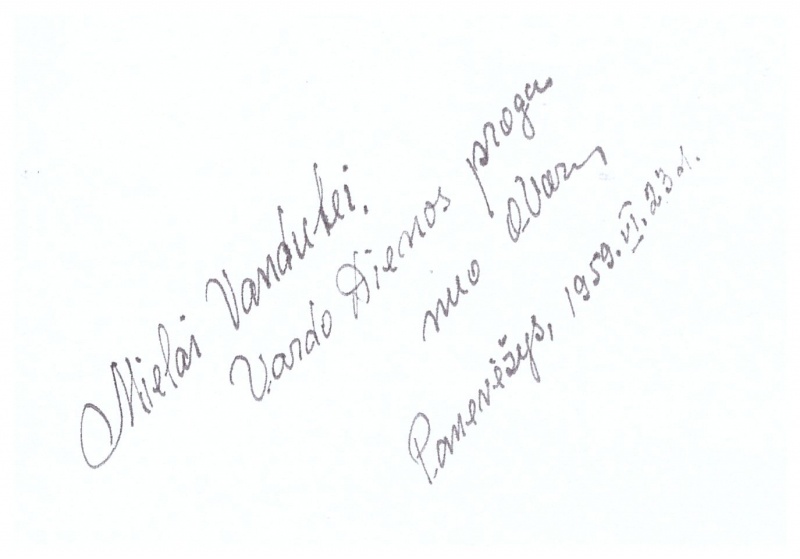 Mielai Vandutei.
Vardo Dienos proga
nuo
Panevėžys, 1959.VI.23 d.